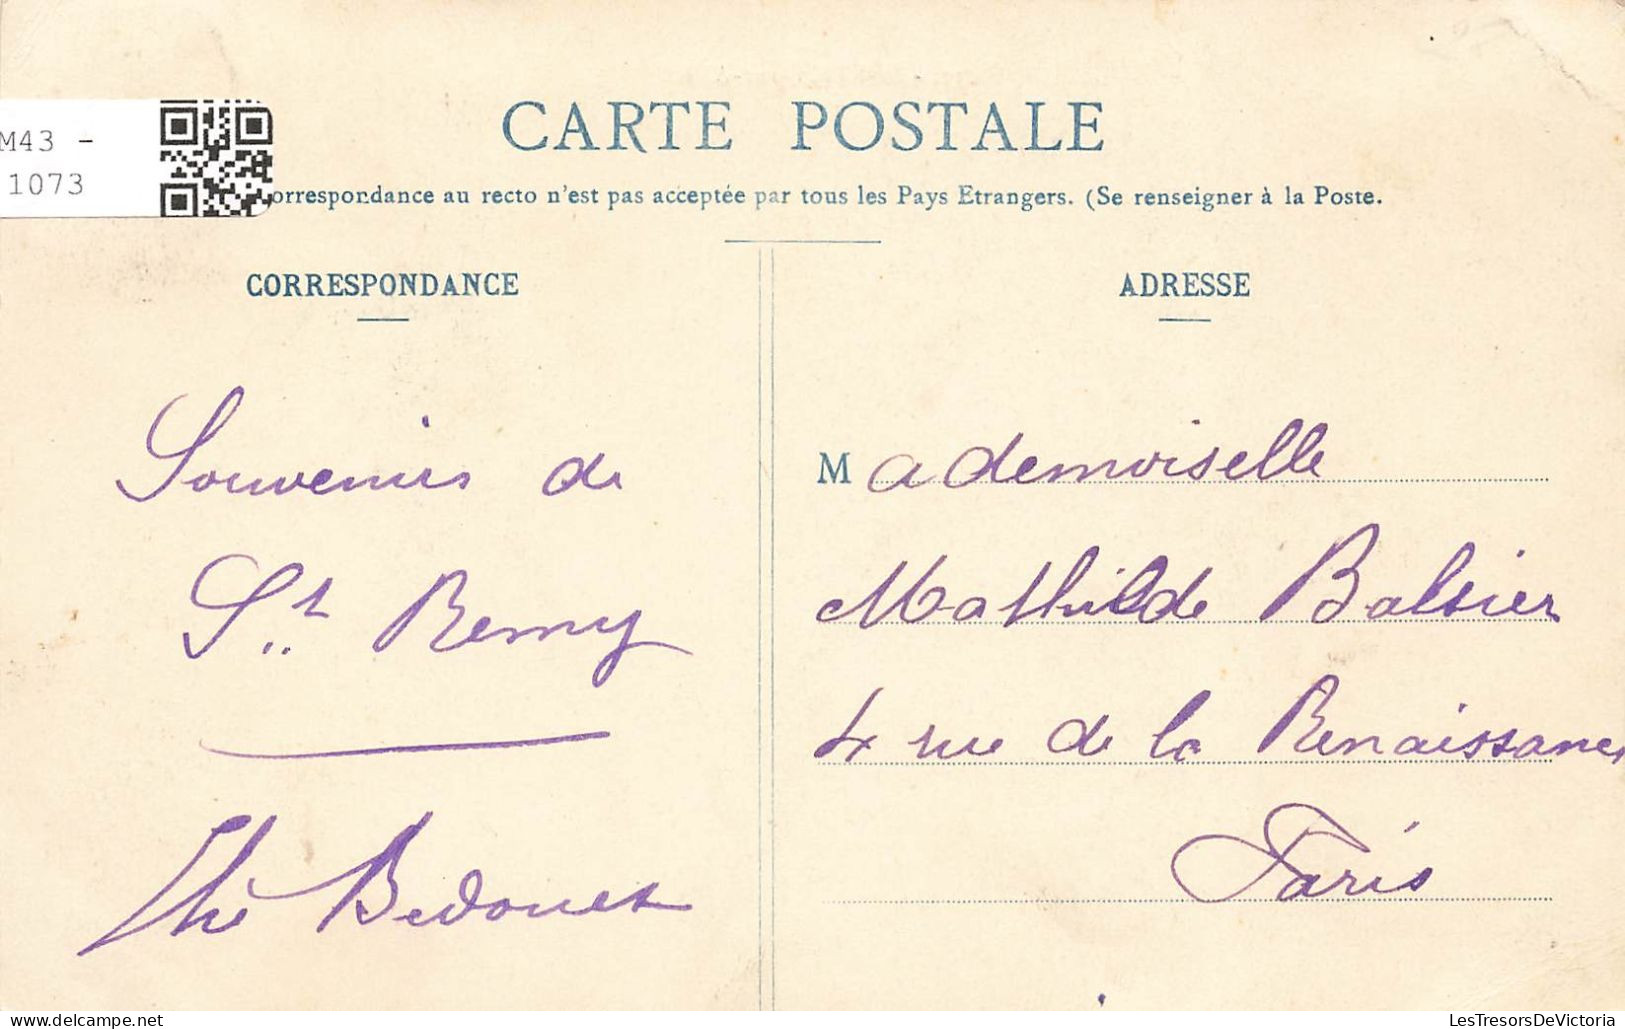 CARTE POSTALE
M43 -
1073
orrespondance au recto n'est pas acceptée par tous les Pays Etrangers. (Se renseigner à la Poste.
CORRESPONDANCE
Souvenirs de
St. Remy
ADRESSE
Mademoiselle
Mathilde Balsier
4 rue de la Renaissance
Paris
LesTresorsDeVictoria